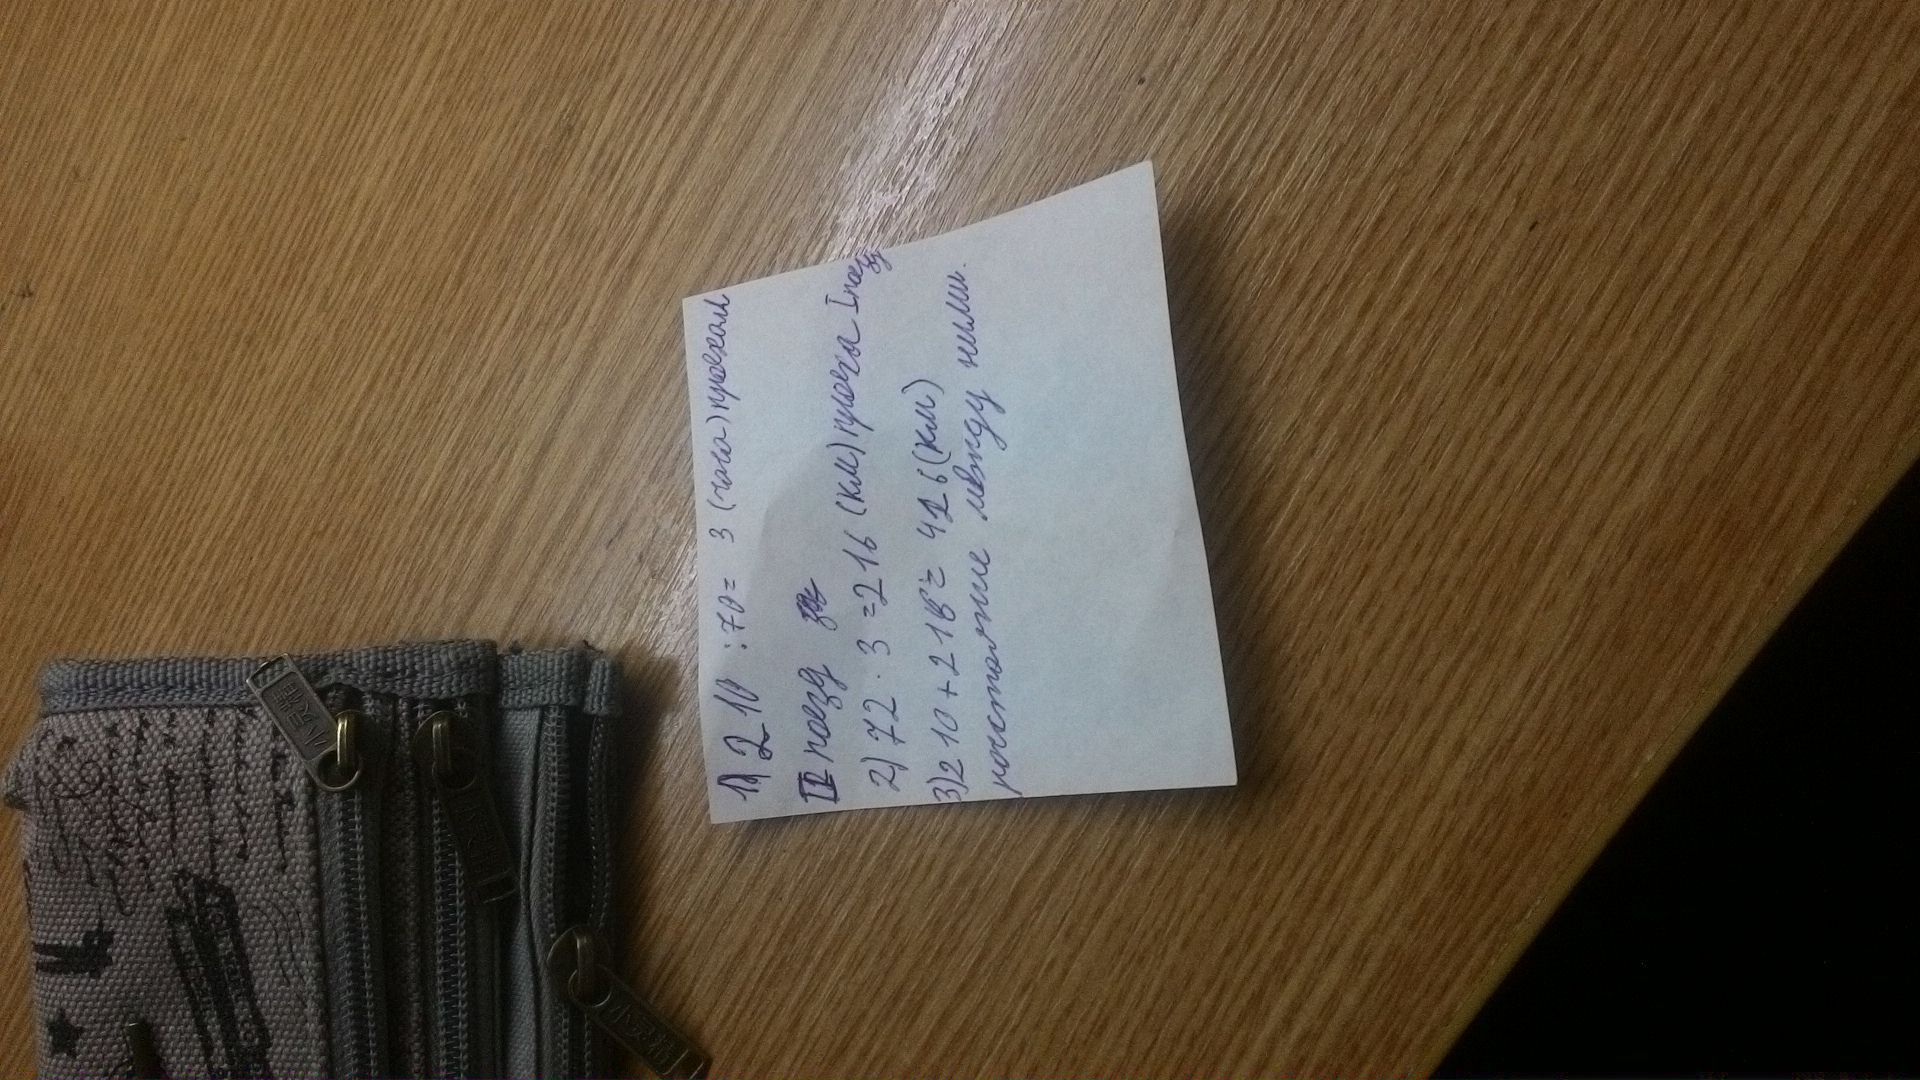 1) 210 : 70 = 3 (часа) проехал
II поезд
2) 72 · 3 = 216 (км) проеха I поезд
3) 210 + 216 = 426 (км)
росстояние между ними.